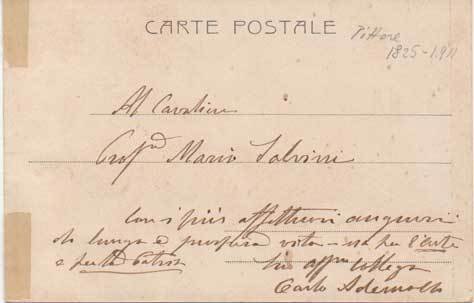 CARTE POSTALE
Pittore
1825-1911
Al Cavaliere
Prof. Mario Salvini
Con i più affettuosi auguri
di lunga e prospera vita per l'arte
e per la Patria
Suo affmo collega
Carlo Ademollo